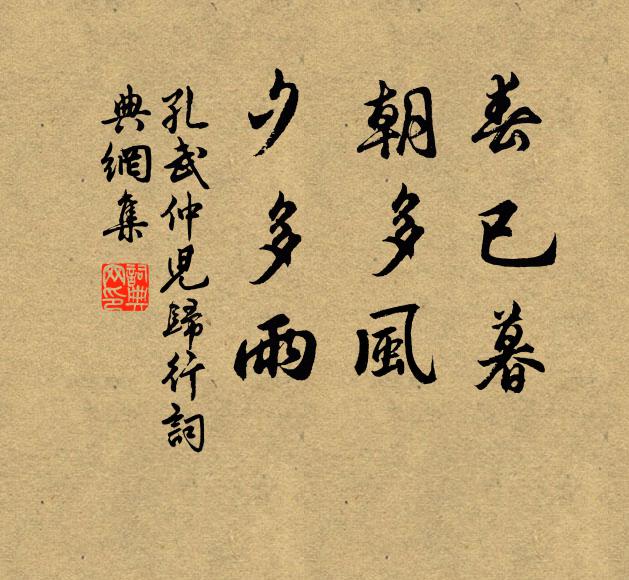 春已暮
朝多風
夕多雨
孔武仲兒歸行詞
典網集
詞典
網印